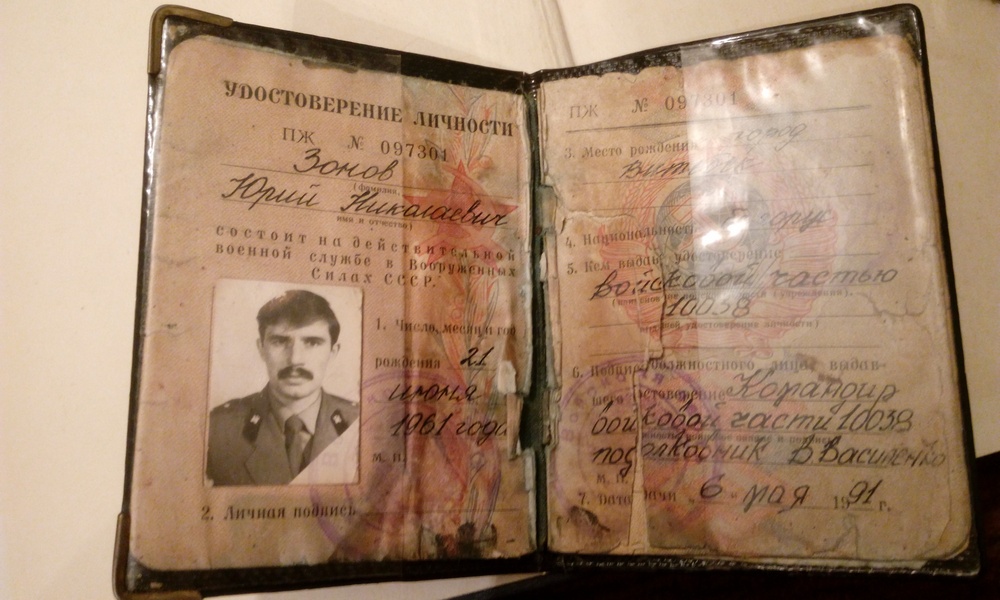 УДОСТОВЕРЕНИЕ ЛИЧНОСТИ
ПЖ № 097301
Зонов
(фамилия,
Юрий Николаевич
имя и отчество)
состоит на действительной
военной службе в Вооруженных
Силах СССР.
1. Число, месяц и год
рождения 21
1961 года
М. П.
2. Личная подпись
ПЖ № 097301
3. Место рождения город
4. Национальность
5. Кем выдано удостоверение
войсковой частью
10038
дней удостоверение личности)
6. Подпись должностного лица, выдав-
шего удостоверение Командир
войсковой части 10038
подполковник В Василенко
М. П.
7. Дата выдачи „6" мая 1991 г.